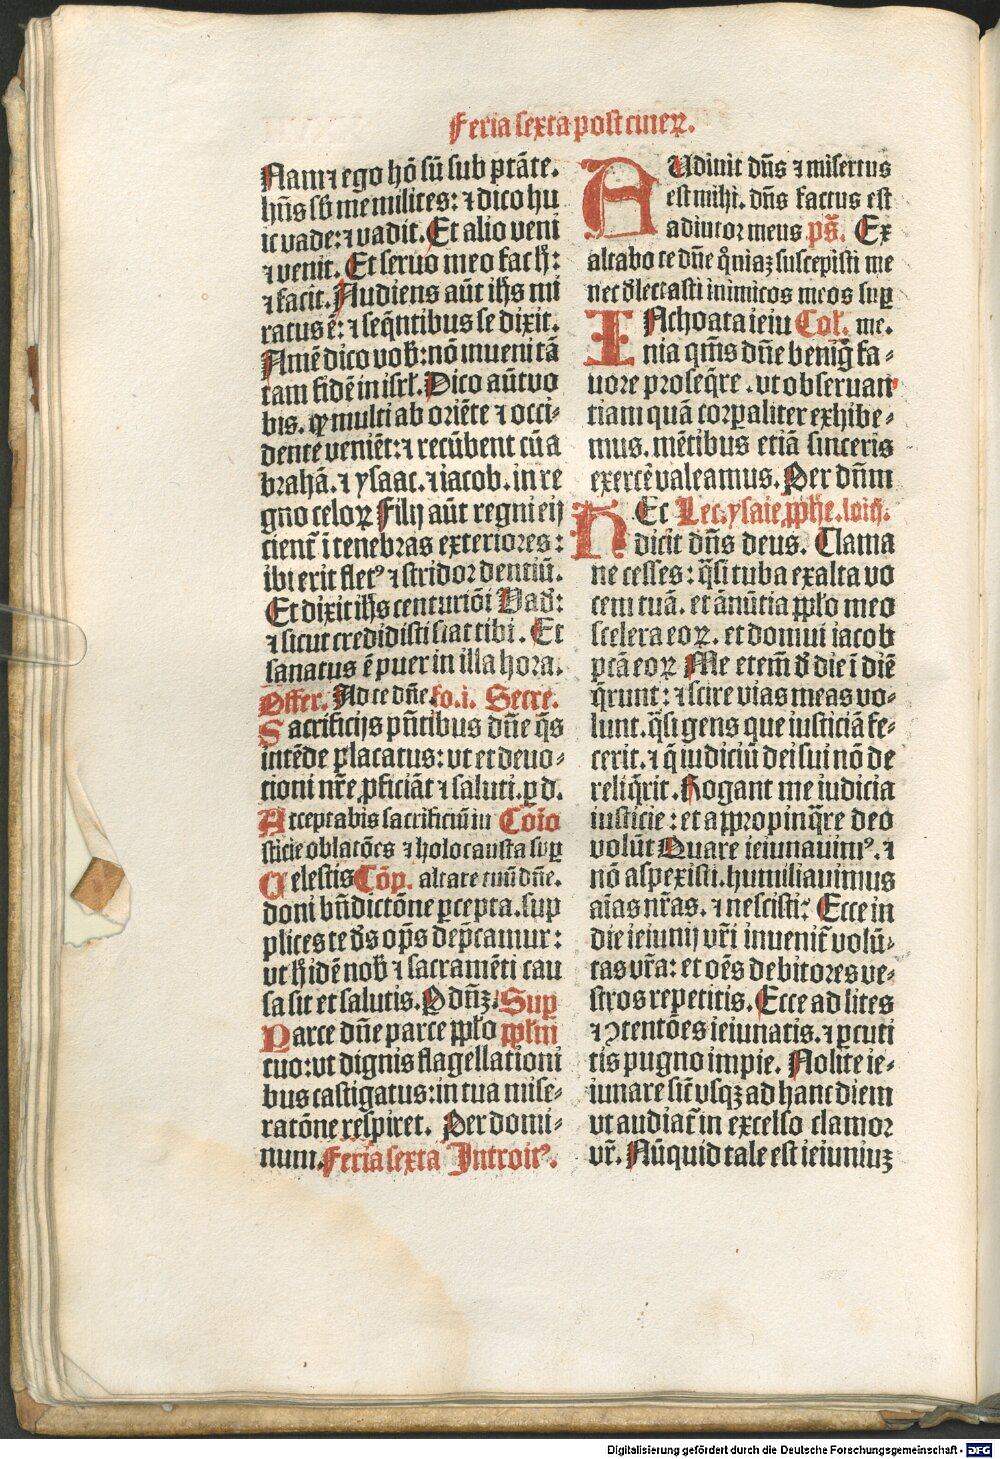 Feria sexta post cinerꝝ.
Nam ⁊ ego hō sū sub ptāte.
hn̄s sb me milites: ⁊ dico hu
ic vade: ⁊ vadit. Et alio veni
⁊ venit. Et seruo meo fac h̄:
⁊ facit. Audiens aūt ih̄s mi
ratus ē: ⁊ seqn̄tibus se dixit.
Amē dico vob̄: nō inueni tā
tam fidē in isrl̄. Dico aūt vo
bis. ꝙ multi ab oriēte ⁊ occi⸗
dente veniēt: ⁊ recūbent cū a
brahā. ⁊ ysaac. ⁊ iacob. in re
gno celoꝝ Filij aūt regni eij
cient̄ ī tenebras exteriores:
ibi erit flet⁹ ⁊ stridor dentiū.
Et dixit ih̄s centuriōi Vad̄:
⁊ sicut credidisti fiat tibi. Et
sanatus ē puer in illa hora.
Offer. Ad te dn̄e. fo. i. Secre.
Sacrificijs pn̄tibus dn̄e q̄s
intēde placatus: vt et deuo⸗
tioni nr̄e ꝓficiāt ⁊ saluti. ꝑ d.
Acceptabis sacrificiū iu Cōio
sticie oblatōes ⁊ holocausta suꝑ
Celestis Cōp. altare tuū dn̄e.
doni bn̄dictōne ꝑcepta. sup
plices te d̄s op̄s dep̄camur:
vt h̄ idē nob̄ ⁊ sacramēti cau
sa sit et salutis. P dn̄ꝫ. Sup
Parce dn̄e parce pp̄lo pp̄lm
tuo: vt dignis flagellationi
bus castigatus: in tua mise⸗
ratōne respiret. Per domi⸗
num. Feria sexta Introit⁹.
AUdiuit dn̄s ⁊ misertus
est mihi. dn̄s factus est
adiutor meus ps̄. Ex
altabo te dn̄e qn̄iaꝫ suscepisti me
nec dlectasti inimicos meos suꝑ
INchoata ieiu Col̄. me.
nia qm̄s dn̄e beniḡ fa⸗
uore proseq̄re. vt obseruan
tiam quā corꝑaliter exhibe⸗
mus. mētibus etiā sinceris
exercē valeamus. Per dn̄m
HEc Lec. ysaie ꝓphe. lviij.
dicit dn̄s deus. Clama
ne cesses: q̄si tuba exalta vo
cem tuā. et ānūtia pp̄lo meo
scelera eoꝝ. et domui iacob
pctā eoꝝ Me etem̄ d̄ die ī diē
q̄runt: ⁊ scire vias meas vo⸗
lunt. q̄si gens que iusticiā fe⸗
cerit. ⁊ q̄ iudiciū dei sui nō de
reliq̄rit. Rogant me iudicia
iusticie: et appropinq̄re deo
volūt Quare ieiunauim⁹. ⁊
nō aspexisti. humiliauimus
aīas nr̄as. ⁊ nescisti: Ecce in
die ieiunij vr̄i inuenit̄ volū⸗
tas vr̄a: et oēs debitores ve⸗
stros repetitis. Ecce ad lites
⁊ ꝯtentōes ieiunatis. ⁊ ꝑcuti
tis pugno impie. Nolite ie⸗
iunare sic̄ vsqꝫ ad hanc diem
vt audiat̄ in excelso clamor
vr̄. Nūquid tale est ieiuniuꝫ
Digitalisierung gefördert durch die Deutsche Forschungsgemeinschaft - DFG